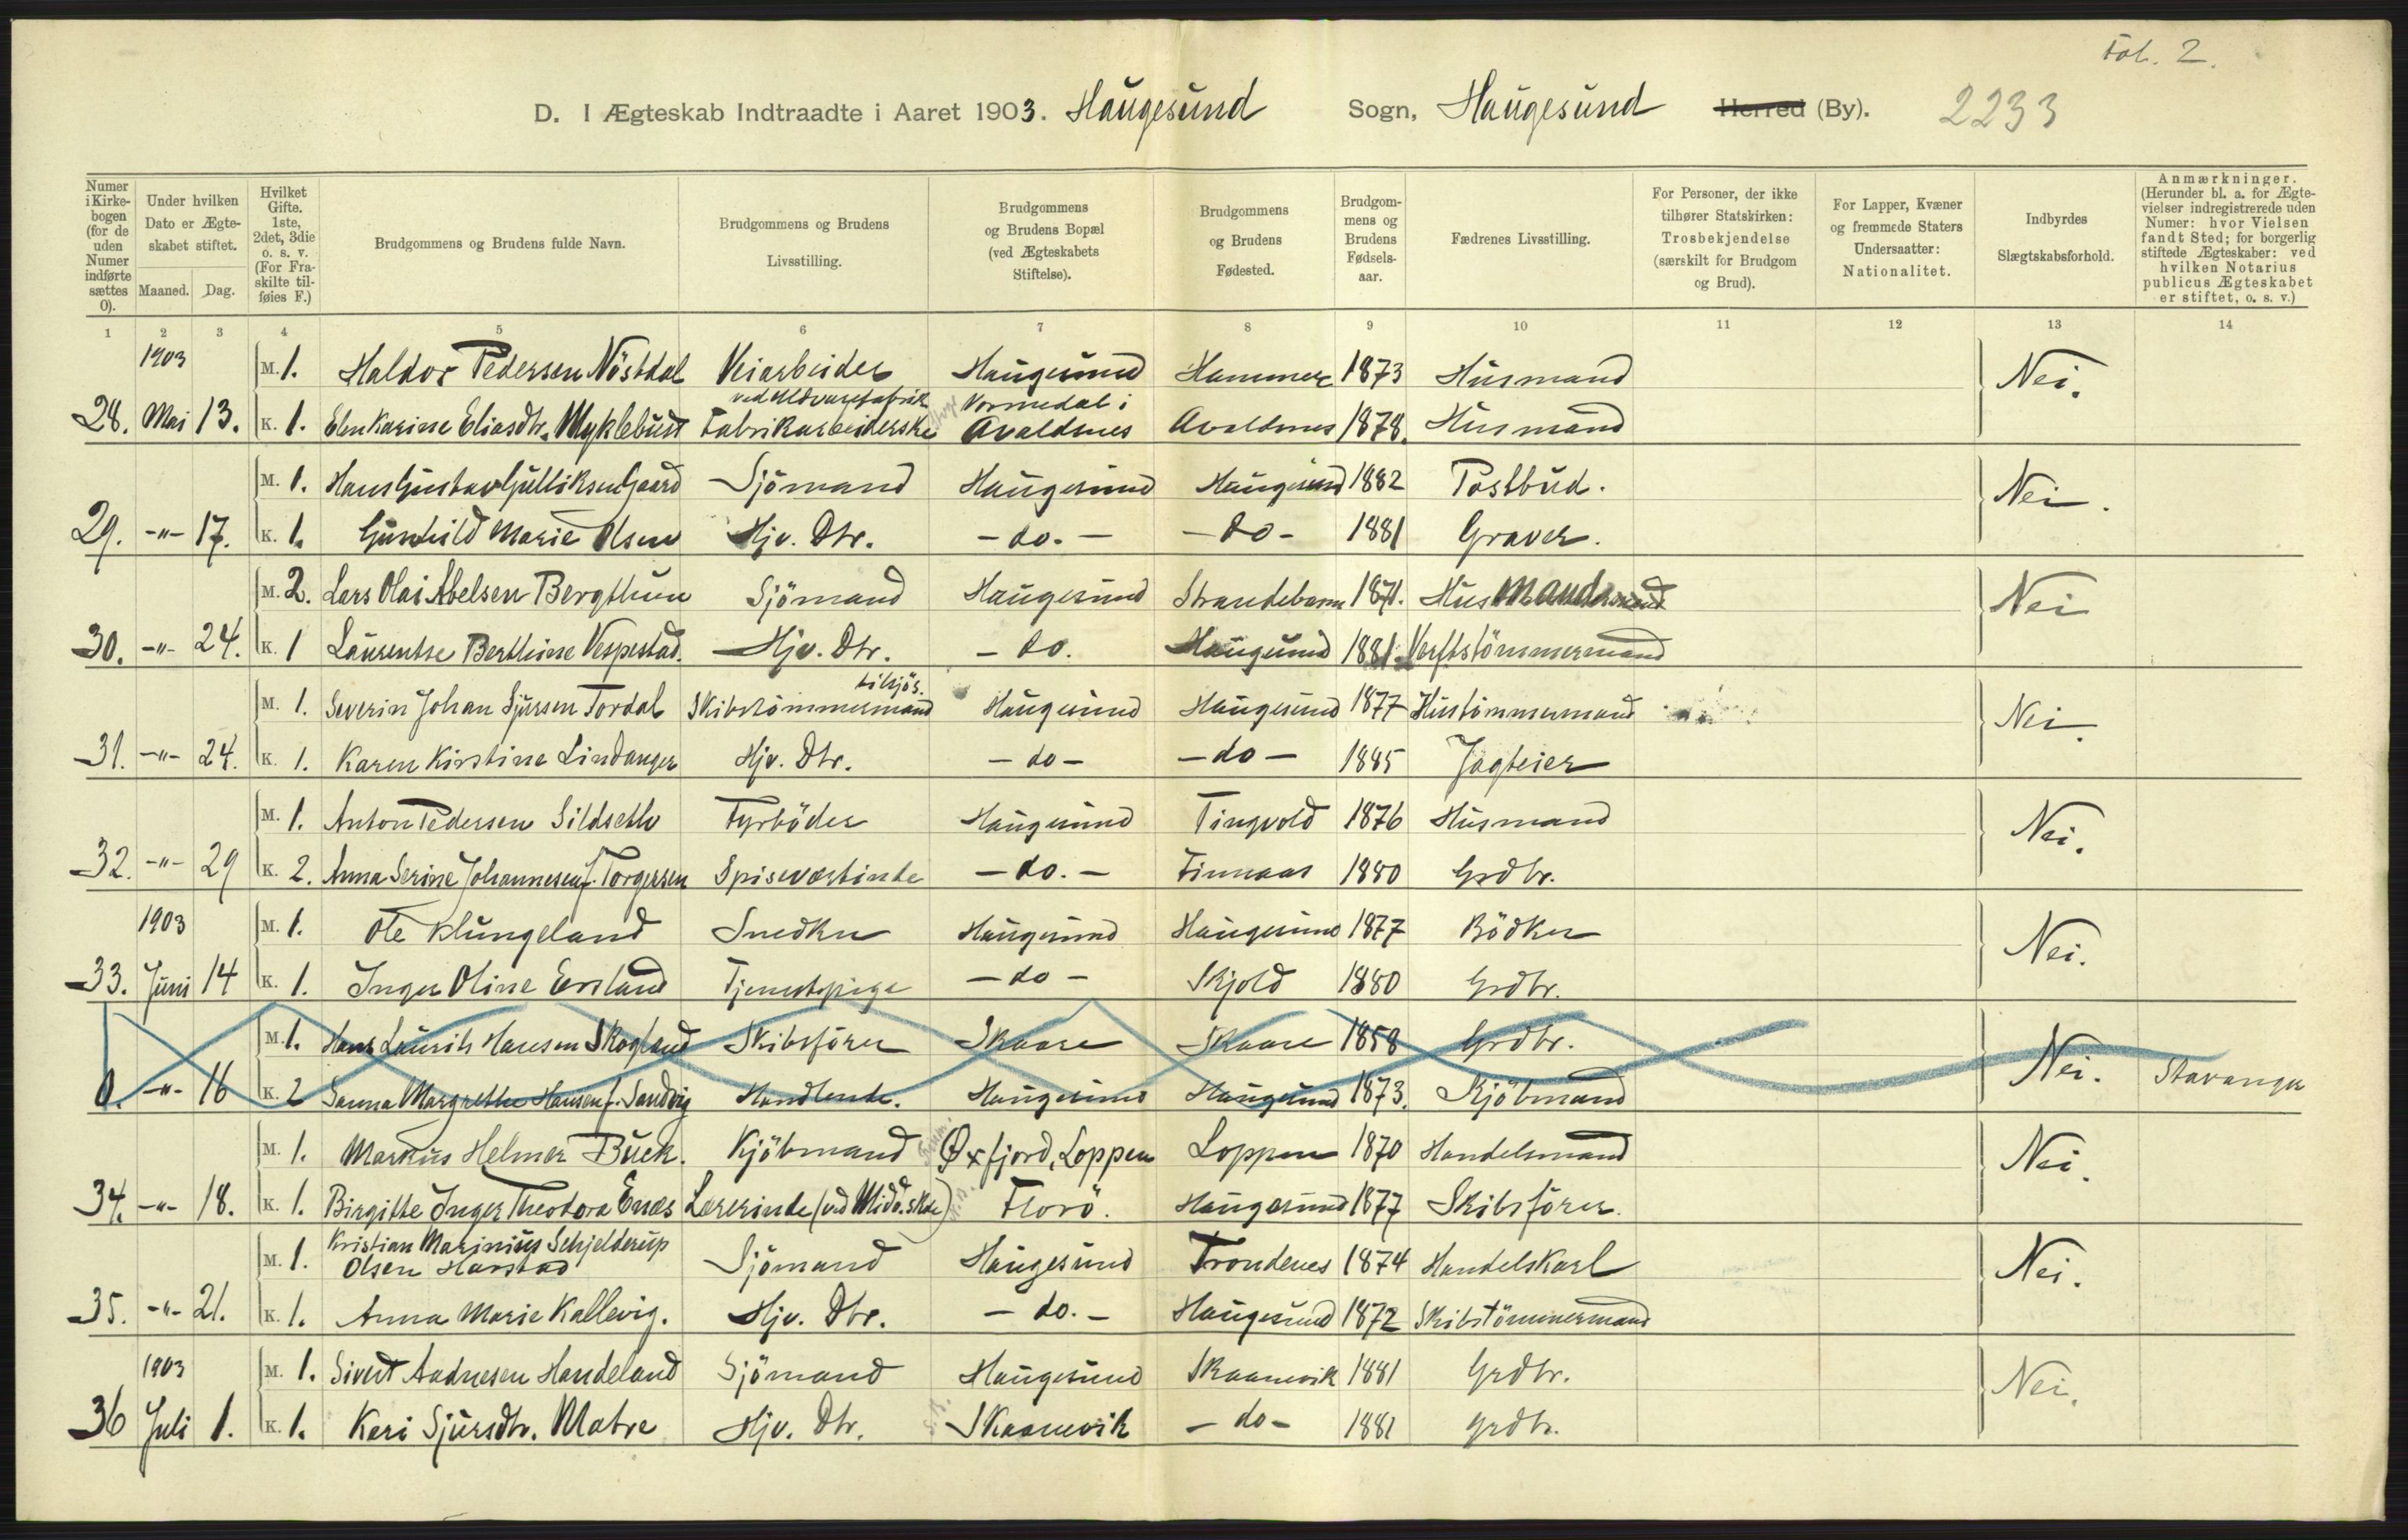 Fol. 2.
D. I Ægteskab Indtraadte i Aaret 1903. Haugesund Sogn, Haugesund Herred (By). 2233
Numer i Kirkebogen (for de uden Numer indførte sættes 0).
Under hvilken Dato er Ægteskabet stiftet. Maaned. Dag.
Hvilket Gifte. 1ste, 2det, 3die o. s. v. (For Fraskilte tilføies F.)
Brudgommens og Brudens fulde Navn.
Brudgommens og Brudens Livsstilling.
Brudgommens og Brudens Bopæl (ved Ægteskabets Stiftelse).
Brudgommens og Brudens Fødested.
Brudgommens og Brudens Fødselsaar.
Fædrenes Livsstilling.
For Personer, der ikke tilhører Statskirken: Trosbekjendelse (særskilt for Brudgom og Brud).
For Lapper, Kvæner og fremmede Staters Undersaatter: Nationalitet.
Indbyrdes Slægtskabsforhold.
Anmærkninger. (Herunder bl. a. for Ægtevielser indregistrerede uden Numer: hvor Vielsen fandt Sted; for borgerlig stiftede Ægteskaber: ved hvilken Notarius publicus Ægteskabet er stiftet, o. s. v.)
1 2 3 4 5 6 7 8 9 10 11 12 13 14
1903 M. 1. Haldor Pedersen Nöstdal Veiarbeider Haugesund Hammer 1873 Husmand Nei.
ved Uldvarefabrik Vormedal i
28. Mai 13. K. 1. Elen Karine Eliasdtr. Myklebust Fabrikarbeiderske Avaldsnes Avaldsnes 1878. Husmand
M. 1. Hans Gustav Gulliksen Gaard Sjömand Haugesund Haugesund 1882 Postbud. Nei.
29. -"- 17. K. 1. Gunhild Marie Olsen Hjv. Dtr. - do. - - do - 1881 Graver.
M. 2. Lars Olai Abelsen Bergthun Sjömand Haugesund Strandebarm 1871. Husmand Nei
30. -"- 24. K. 1 Laurentse Berthine Vespestad. Hjv. Dtr. - do. Haugesund 1881. Verftstömmermand
tilsjös.
M. 1. Severin Johan Sjursen Tordal Skibstömmermand Haugesund Haugesund 1877 Hustömmermand Nei.
31. -"- 24. K. 1. Karen Kirstine Lindanger Hjv. Dtr. - do - - do - 1885 Jagteier
M. 1. Anton Pedersen Sildseth Fyrböder Haugesund Tingvold 1876 Husmand Nei.
32. -"- 29 K. 2. Anna Serine Johannesen f. Torgersen Spiseværtinde - do. - Finnaas 1880 Grdbr.
1903 M. 1. Ole Klungeland Snedker Haugesund Haugesund 1877 Bödker Nei.
33. Juni 14 K. 1. Inger Oline Ersland Tjenestepige - do - Skjold 1880 Grdbr.
M. 1. Hans Laurits Hansen Skogland Skibsförer Skaare Skaare 1858 Grdbr. Nei. Stavanger
0. -"- 16 K. 2 Sanna Margrethe Hansen f. Sandvig Handlende. Haugesund Haugesund 1873. Kjöbmand
M. 1. Markus Helmer Buck. Kjöbmand Øxfjord, Loppen Loppen 1870 Handelsmand Nei.
34. -"- 18. K. 1. Birgitte Inger Theodora Enæs Lærerinde (ved Midd.skole) Florö. Haugesund 1877 Skibsförer.
Kristian Marinius Schjelderup
M. 1. Olsen Harstad Sjömand Haugesund Trondenes 1874 Handelskarl Nei.
35. -"- 21. K. 1. Anna Marie Kallevig. Hjv. Dtr. - do. - Haugesund 1872 Skibstömmermand
1903 M. 1. Sivert Aadnesen Handeland Sjömand Haugesund Skaanevik 1881 Grdbr. Nei.
36 Juli 1. K. 1. Kari Sjursdtr. Matre Hjv. Dtr. Skaanevik - do - 1881 Grdbr.